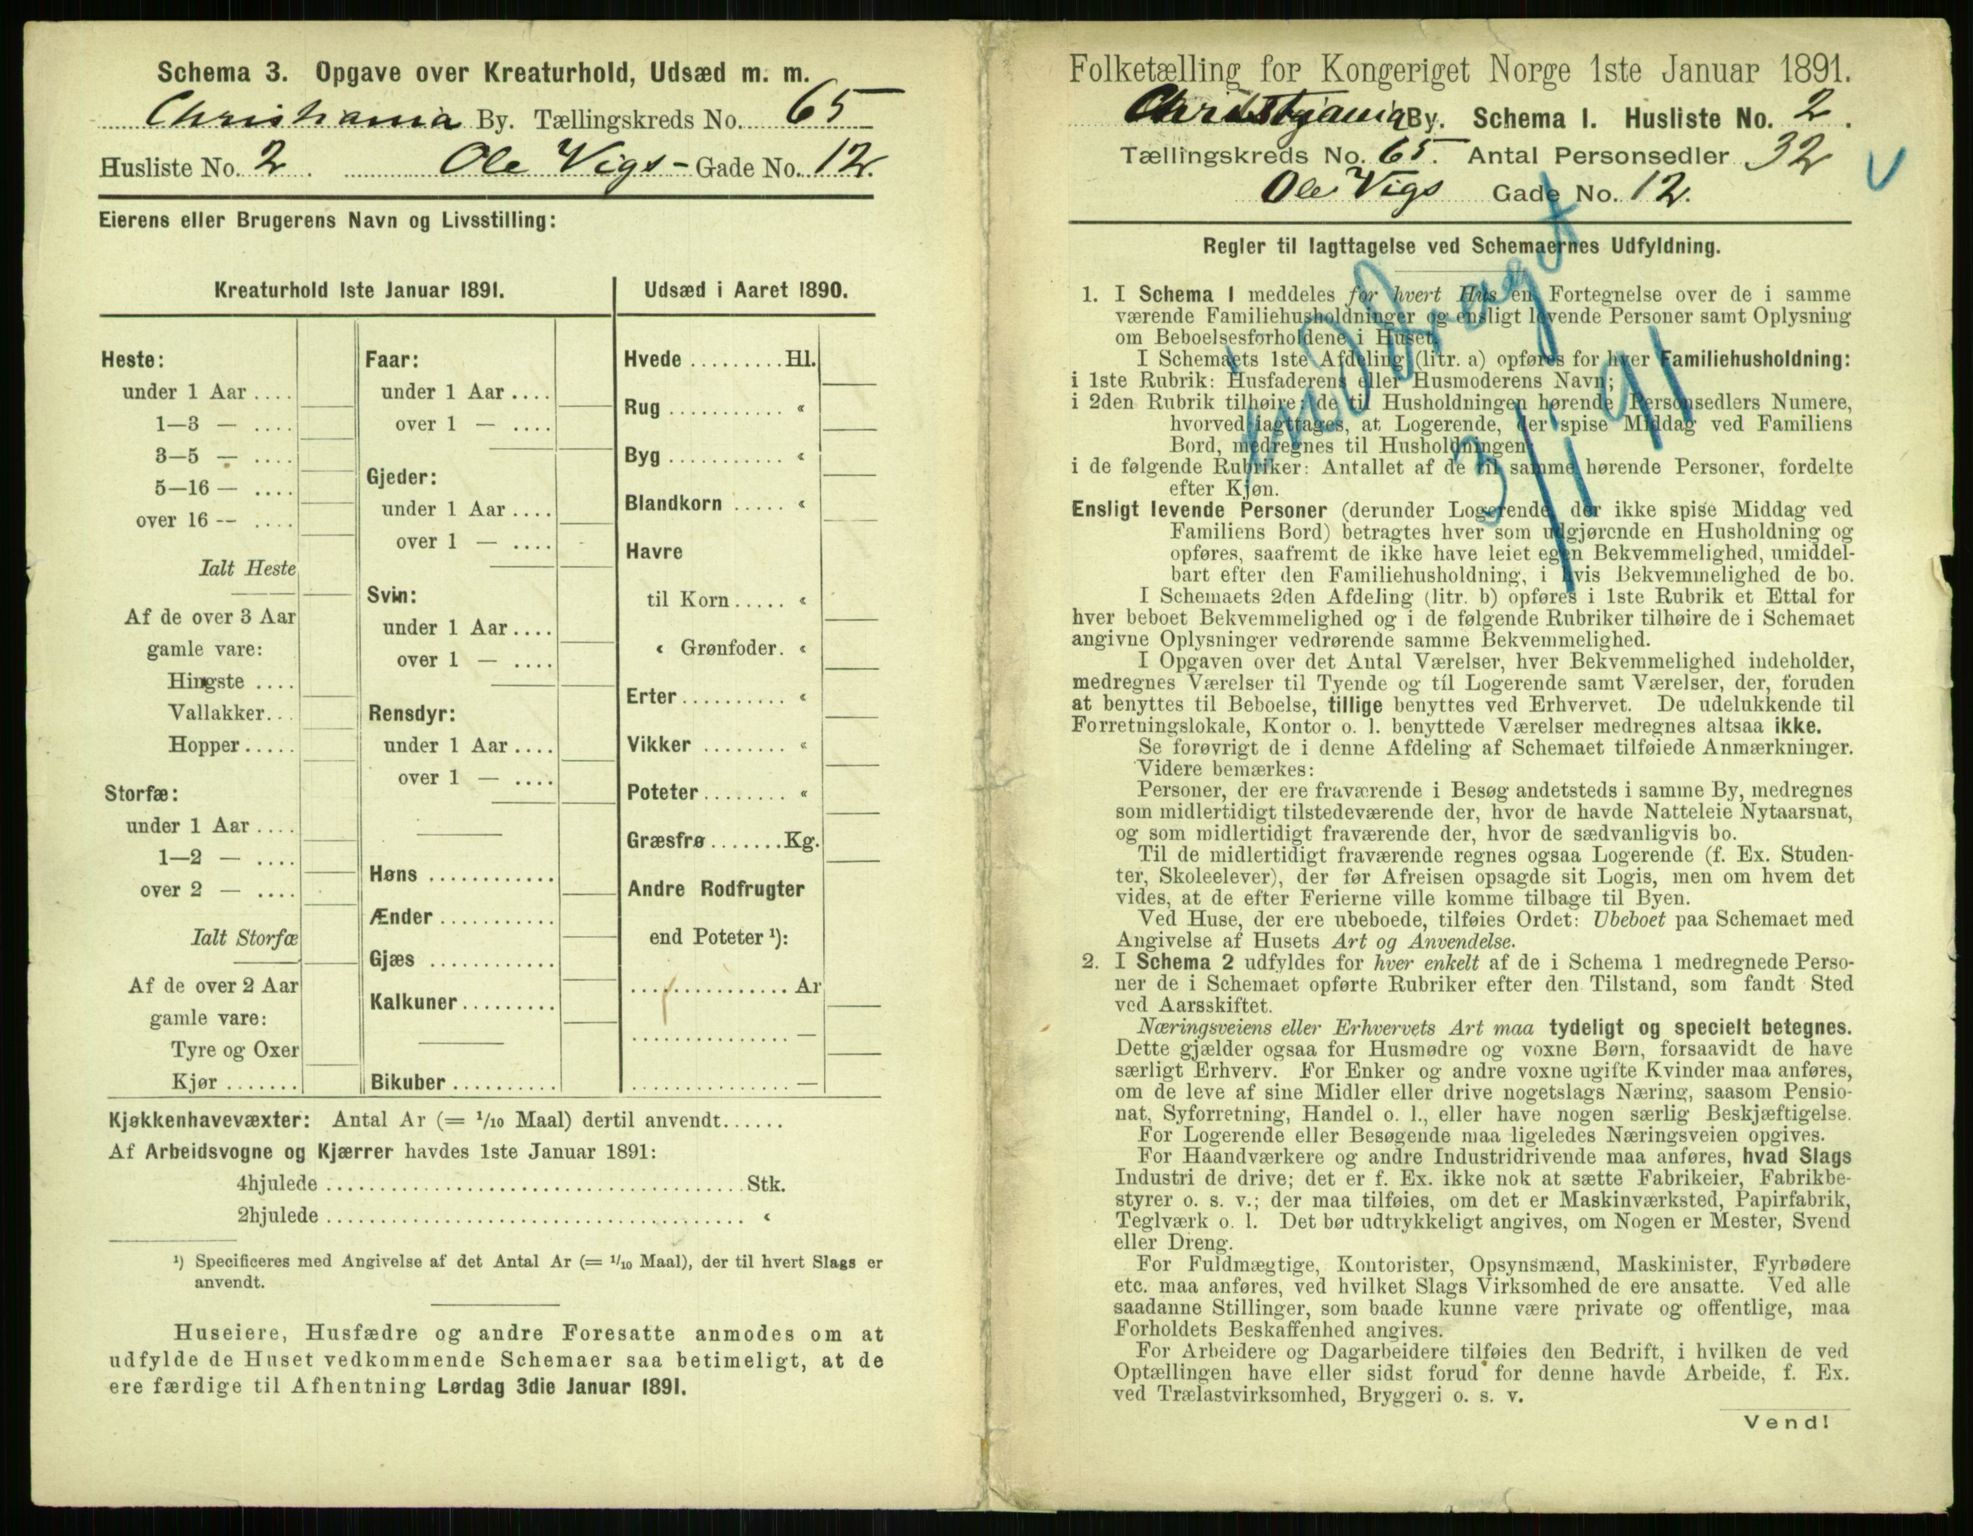 Schema 3. Opgave over Kreaturhold, Udsæd m. m.
Christiania By. Tællingskreds No. 65
Husliste No. 2. Ole Vigs - Gade No. 12.
Eierens eller Brugerens Navn og Livsstilling:
Kreaturhold 1ste Januar 1891.
Heste:
under 1 Aar ....
1—3 — ....
3—5 — ....
5—16 — ....
over 16 -- ....
Ialt Heste
Af de over 3 Aar
gamle vare:
Hingste ....
Vallakker...
Hopper.....
Storfæ:
under 1 Aar ....
1—2 — ....
over 2 — ....
Ialt Storfæ
Af de over 2 Aar
gamle vare:
Tyre og Oxer
Kjør .......
Faar:
under 1 Aar ....
over 1 — ....
Gjeder:
under 1 Aar ....
over 1 — ....
Svin:
under 1 Aar ....
over 1 — ....
Rensdyr:
under 1 Aar ....
over 1 — ....
Høns ............
Ænder ...........
Gjæs ............
Kalkuner.........
Bikuber ..........
Udsæd i Aaret 1890.
Hvede .........Hl.
Rug ........... «
Byg ........... «
Blandkorn ..... «
Havre
til Korn ..... «
« Grønfoder. «
Erter .......... «
Vikker ........ «
Poteter........ «
Græsfrø .......Kg.
Andre Rodfrugter
end Poteter ¹):
............... Ar
............... —
............... —
Kjøkkenhavevæxter: Antal Ar (= 1/10 Maal) dertil anvendt......
Af Arbeidsvogne og Kjærrer havdes 1ste Januar 1891:
4hjulede ....................................... Stk.
2hjulede ....................................... «
¹) Specificeres med Angivelse af det Antal Ar (= 1/10 Maal), der til hvert Slags er
anvendt.
Huseiere, Husfædre og andre Foresatte anmodes om at
udfylde de Huset vedkommende Schemaer saa betimeligt, at de
ere færdige til Afhentning Lørdag 3die Januar 1891.
Folketælling for Kongeriget Norge 1ste Januar 1891.
Christiania By. Schema 1. Husliste No. 2.
Tællingskreds No. 65. Antal Personsedler 32
Ole Vigs Gade No. 12.
3/1 91
Regler til Iagttagelse ved Schemaernes Udfyldning.
1. I Schema 1 meddeles for hvert Hus en Fortegnelse over de i samme
værende Familiehusholdninger og ensligt levende Personer samt Oplysning
om Beboelsesforholdene i Huset.
I Schemaets 1ste Afdeling (litr. a) opføres for hver Familiehusholdning:
i 1ste Rubrik: Husfaderens eller Husmoderens Navn;
i 2den Rubrik tilhøire: de til Husholdningen hørende Personsedlers Numere,
hvorved iagttages, at Logerende, der spise Middag ved Familiens
Bord, medregnes til Husholdningen;
i de følgende Rubriker: Antallet af de til samme hørende Personer, fordelte
efter Kjøn.
Ensligt levende Personer (derunder Logerende, der ikke spise Middag ved
Familiens Bord) betragtes hver som udgjørende en Husholdning og
opføres, saafremt de ikke have leiet egen Bekvemmelighed, umiddel-
bart efter den Familiehusholdning, i hvis Bekvemmelighed de bo.
I Schemaets 2den Afdeling (litr. b) opføres i 1ste Rubrik et Ettal for
hver beboet Bekvemmelighed og i de følgende Rubriker tilhøire de i Schemaet
angivne Oplysninger vedrørende samme Bekvemmelighed.
I Opgaven over det Antal Værelser, hver Bekvemmelighed indeholder,
medregnes Værelser til Tyende og til Logerende samt Værelser, der, foruden
at benyttes til Beboelse, tillige benyttes ved Erhvervet. De udelukkende til
Forretningslokale, Kontor o. l. benyttede Værelser medregnes altsaa ikke.
Se forøvrigt de i denne Afdeling af Schemaet tilføiede Anmærkninger.
Videre bemærkes:
Personer, der ere fraværende i Besøg andetsteds i samme By, medregnes
som midlertidigt tilstedeværende der, hvor de havde Natteleie Nytaarsnat,
og som midlertidigt fraværende der, hvor de sædvanligvis bo.
Til de midlertidigt fraværende regnes ogsaa Logerende (f. Ex. Studen-
ter, Skoleelever), der før Afreisen opsagde sit Logis, men om hvem det
vides, at de efter Ferierne ville komme tilbage til Byen.
Ved Huse, der ere ubeboede, tilføies Ordet: Ubeboet paa Schemaet med
Angivelse af Husets Art og Anvendelse.
2. I Schema 2 udfyldes for hver enkelt af de i Schema 1 medregnede Perso-
ner de i Schemaet opførte Rubriker efter den Tilstand, som fandt Sted
ved Aarsskiftet.
Næringsveiens eller Erhvervets Art maa tydeligt og specielt betegnes.
Dette gjælder ogsaa for Husmødre og voxne Børn, forsaavidt de have
særligt Erhverv. For Enker og andre voxne ugifte Kvinder maa anføres,
om de leve af sine Midler eller drive nogetslags Næring, saasom Pensio-
nat, Syforretning, Handel o. l., eller have nogen særlig Beskjæftigelse.
For Logerende eller Besøgende maa ligeledes Næringsveien opgives.
For Haandværkere og andre Industridrivende maa anføres, hvad Slags
Industri de drive; det er f. Ex. ikke nok at sætte Fabrikeier, Fabrikbe-
styrer o. s. v.; der maa tilføies, om det er Maskinværksted, Papirfabrik,
Teglværk o. l. Det bør udtrykkeligt angives, om Nogen er Mester, Svend
eller Dreng.
For Fuldmægtige, Kontorister, Opsynsmænd, Maskinister, Fyrbødere
etc. maa anføres, ved hvilket Slags Virksomhed de ere ansatte. Ved alle
saadanne Stillinger, som baade kunne være private og offentlige, maa
Forholdets Beskaffenhed angives.
For Arbeidere og Dagarbeidere tilføies den Bedrift, i hvilken de ved
Optællingen have eller sidst forud for denne havde Arbeide, f. Ex.
ved Trælastvirksomhed, Bryggeri o. s. v.
Vend!